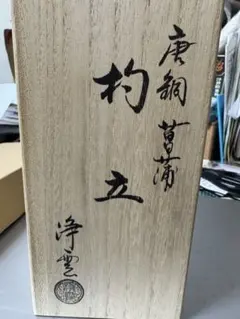 唐銅 菖蒲
杓立
浄雲